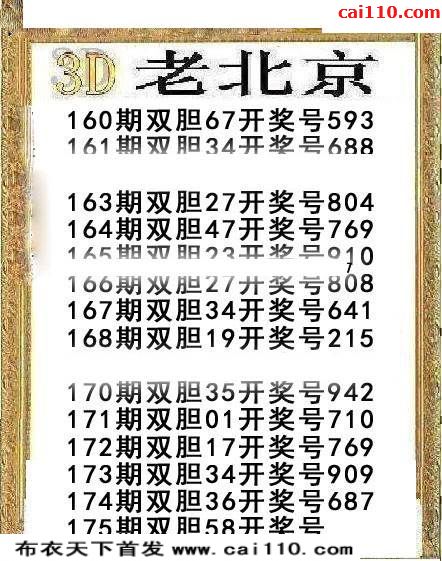 cai110.com
3D 老北京
160期双胆67开奖号593
161期双胆34开奖号688
163期双胆27开奖号804
164期双胆47开奖号769
165期双胆23开奖号910
7
166期双胆27开奖号808
167期双胆34开奖号641
168期双胆19开奖号215
170期双胆35开奖号942
171期双胆01开奖号710
172期双胆17开奖号769
173期双胆34开奖号909
174期双胆36开奖号687
175期双胆58开奖号
布衣天下首发 www.cai110.com